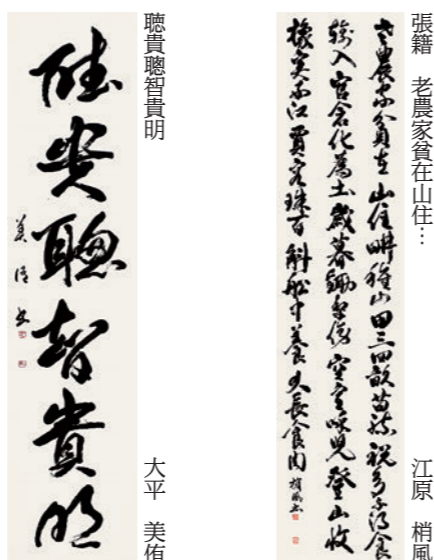 張籍　老農家貧在山住…
江原　梢風
老農家貧在山住畊種山田三四畝苗疎税多不得食
輸入官倉化為土歳暮鋤犂傍空室呼児登山收
橡実西江賈客珠百斛船中養犬長食肉 梢風書
聴貴聰智貴明
大平　美侑
聴貴聰智貴明
美侑書